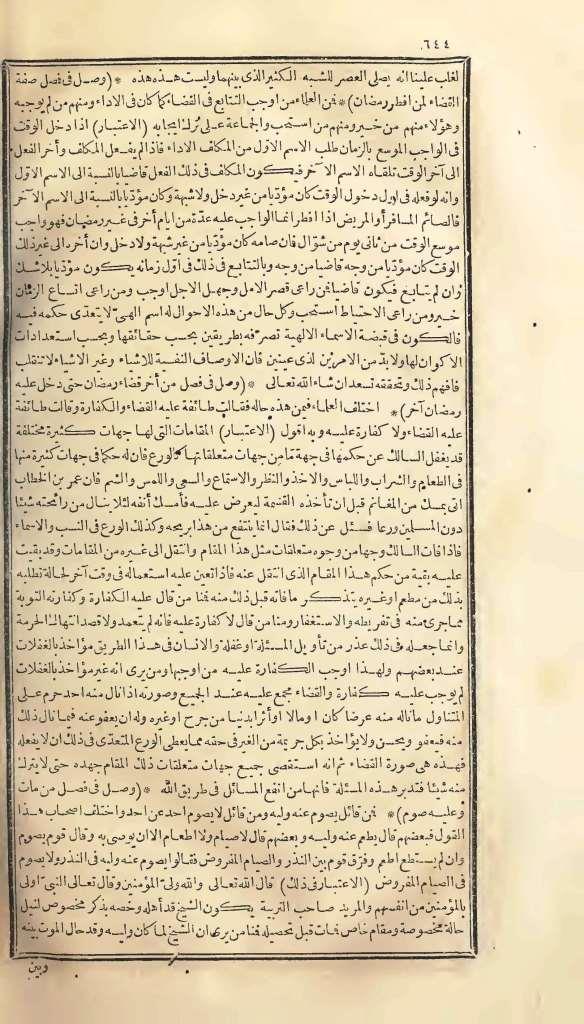 ٦٤٤
لغاب علينا انه يصلى العصر للشبه الكثير الذى بينهما وليست هذه هذه * (وصل فى فصل صفة
القضاء لمن افطر رمضان) * فمن العلماء من اوجب التتابع فى القضاء كما كان فى الاداء ومنهم من لم يوجبه
وهؤلاء منهم من خير ومنهم من استحب والجماعة على ترك ايجابه (الاعتبار) اذا دخل الوقت
فى الواجب الموسع بالزمان طلب الاسم الاول من المكلف الاداء فاذا لم يفعل المكلف وأخر الفعل
الى آخر الوقت تلقاه الاسم الآخر فيكون المكلف فى ذلك الفعل قاضيا بالنسبة الى الاسم الاول
وانه لو فعله فى اول دخول الوقت كان مؤديا من غير دخل ولا شبهة وكان مؤديا بالنسبة الى الاسم الآخر
فالصائم المسافر أو المريض اذا افطر انما الواجب عليه عدّة من ايام أخر فى غير رمضان فهو واجب
موسع الوقت من ثانى يوم من شوّال فان صامه كان مؤديا من غير شبهة ولا دخل وان أخره الى غير ذلك
الوقت كان مؤديا من وجه قاضيا من وجه وبالتتابع فى ذلك فى اوّل زمانه يكون مؤديا بلا شك
وان لم يتابع فيكون قاضيا فمن راعى قصر الامل وجهل الاجل اوجب ومن راعى اتساع الزمان
خير ومن راعى الاحتياط استحب وكل حال من هذه الاحوال له اسم الهى لا يتعدى حكمه فيه
فالكون فى قبضة الاسماء الالهية تصرفه بطريقين بحسب حقائقها وبحسب استعدادات
الاكوان لها ولا بدّ من الامرين لذى عينين فان الاوصاف النفسية للاشياء وغير الاشياء لا تنقلب
فافهم ذلك وتحققه تسعد ان شاء الله تعالى * (وصل فى فصل من أخر قضاء رمضان حتى دخل عليه
رمضان آخر) * اختلف العلماء فيمن هذه حاله فقالت طائفة عليه القضاء والكفارة وقالت طائفة
عليه القضاء ولا كفارة عليه وبه اقول (الاعتبار) المقامات التى لها جهات كثيرة مختلفة
قد يغفل السالك عن حكمها فى جهة ما من جهات متعلقاتها كالورع فان له حكما فى جهات كثيرة منها
فى الطعام والشراب واللباس والاخذ والنظر والاستماع والسعى واللمس والشم فان عمر بن الخطاب
اتى بمسك من المغانم قبل ان تأخذه القسمة ليعرض عليه فأمسك أنفه لئلا ينال من رائحته شيئا
دون المسلمين ورعا فسئل عن ذلك فقال انما ينتفع من هذا بريحه وكذلك الورع فى النسب والاسماء
فاذا فات السالك وجها من وجوه متعلقات مثل هذا المقام وانتقل الى غيره من المقامات وقد بقيت
عليه بقية من حكم هذا المقام الذى انتقل عنه فاذا تعين عليه استعماله فى وقت آخر لحالة تطلبه
بذلك من مطعم او غيره يتذكر ما فاته قبل ذلك منه فمنا من قال عليه الكفارة وكفارته التوبة
مما جرى منه فى تفريطه والاستغفار ومنا من قال لا كفارة عليه فانه لم يتعمد ولا قصد انتهاك الحرمة
وانما جعله فى ذلك عذر من تأويل المسئلة او غفلة والانسان فى هذا الطريق مؤاخذ بالغفلات
عند بعضهم ولهذا اوجب الكفارة عليه من اوجبها ومن يرى انه غير مؤاخذ بالغفلات
لم يوجب عليه كفارة والقضاء مجمع عليه عند الجميع وصورته اذا نال منه احد حرم على
المتناول ما ناله منه عرضا كان او مالا او أثرا بدنيا من جرح او غيره وله ان يعفو عنه فيما نال ذلك
منه فيعفو ويحسن ولا يؤاخذ بكل جريمة من الغير فى حقه مما يعطى الورع المتعدّى فى ذلك ان لا يفعله
فهذه هى صورة القضاء ثم انه استقصى جميع جهات متعلقات ذلك المقام جهده حتى لا يترك
منه شيئا فتدبر هذه المسئلة فانها من انفع المسائل فى طريق الله * (وصل فى فصل من مات
وعليه صوم) * فمن قائل يصوم عنه وليه ومن قائل لا يصوم احد عن احد واختلف اصحاب هذا
القول فبعضهم قال يطعم عنه وليه وبعضهم قال لا صيام ولا اطعام الا ان يوصى به وقال قوم يصوم
وان لم يستطع اطعم وفرّق قوم بين النذر والصيام المفروض فقالوا يصوم عنه وليه فى النذر ولا يصوم
فى الصيام المفروض (الاعتبار فى ذلك) قال الله تعالى والله ولىّ المؤمنين وقال تعالى النبىّ اولى
بالمؤمنين من انفسهم والمريد صاحب التربية يكون الشيخ قد أهله وخصه بذكر مخصوص لنيل
حالة مخصوصة ومقام خاص فمات قبل تحصيله فمنا من يرى ان الشيخ لما كان وليه وقد حال الموت بينه
وبين